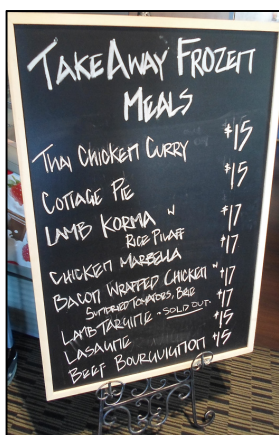 TAKEAWAY FROZEN
MEALS
THAI CHICKEN CURRY $15
COTTAGE PIE $15
LAMB KORMA W $17
RICE PILAFF
CHICKEN MARBELLA $17
BACON WRAPPED CHICKEN W $17
SUNDRIED TOMATOES, BRIE
LAMB TAGINE - SOLD OUT - $17
LASAGNE $15
BEEF BOURGUIGNON $15